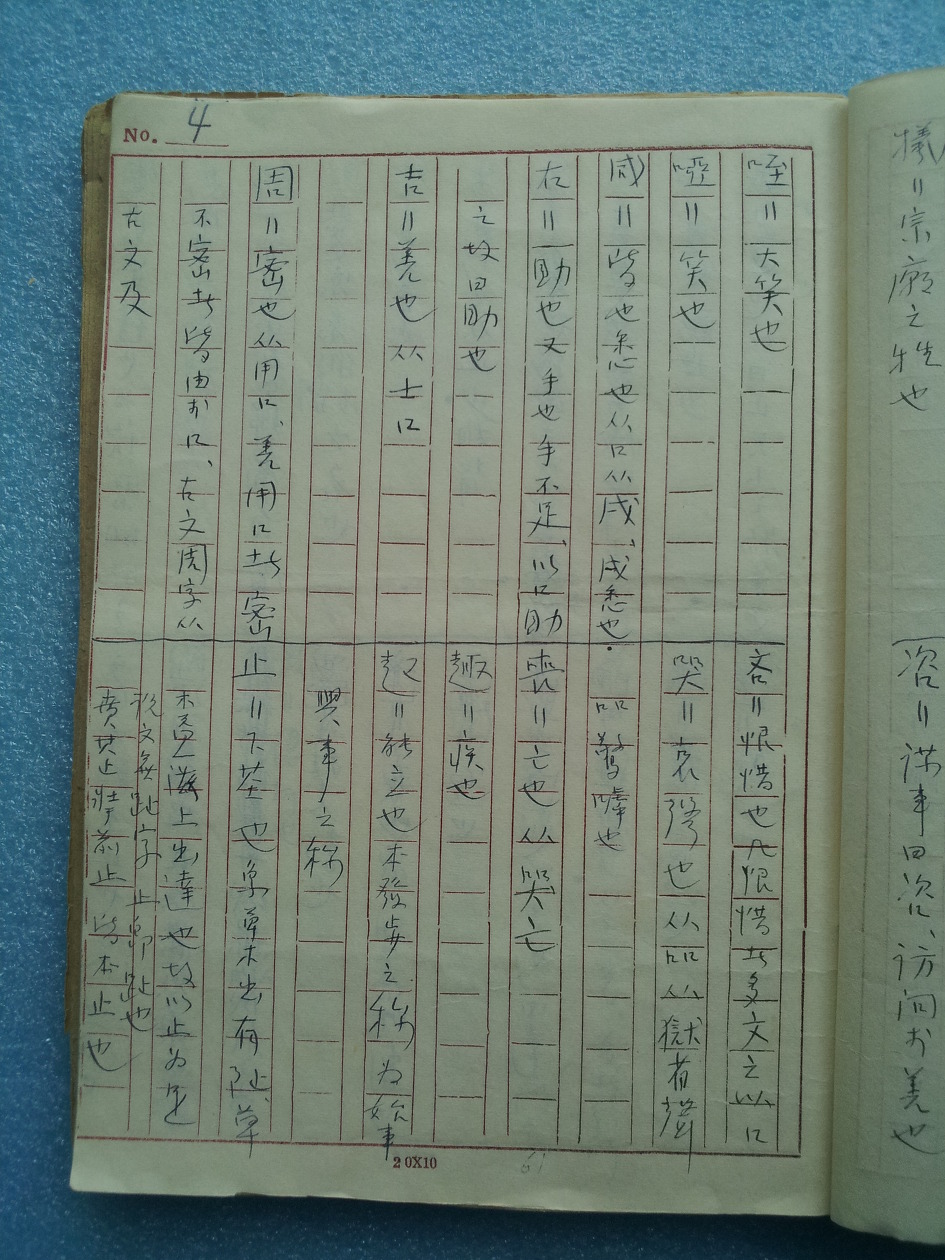 No. 4
咥〃大笑也
啞〃笑也
咸〃皆也悉也从口从戌、戌悉也
右〃助也又手也手不足、以口助
之故曰助也
吉〃善也从士口
周〃密也从用口、善用口者密
不密者皆由於口、古文周字从
古文及
吝〃恨惜也凡恨惜者多文之以口
哭〃哀聲也从吅从獄省聲
吅驚嘑也
喪〃亡也从哭亡
趣〃疾也
起〃能立也本發步之稱为始事
興事之稱
止〃下基也象草木出有阯、草
木滋上出達也故以止为足
說文無趾字止即趾也
賁其止壯前止皆本止也
20X10
61
犧〃宗廟之牲也
咨〃謀事曰咨、访问於善也